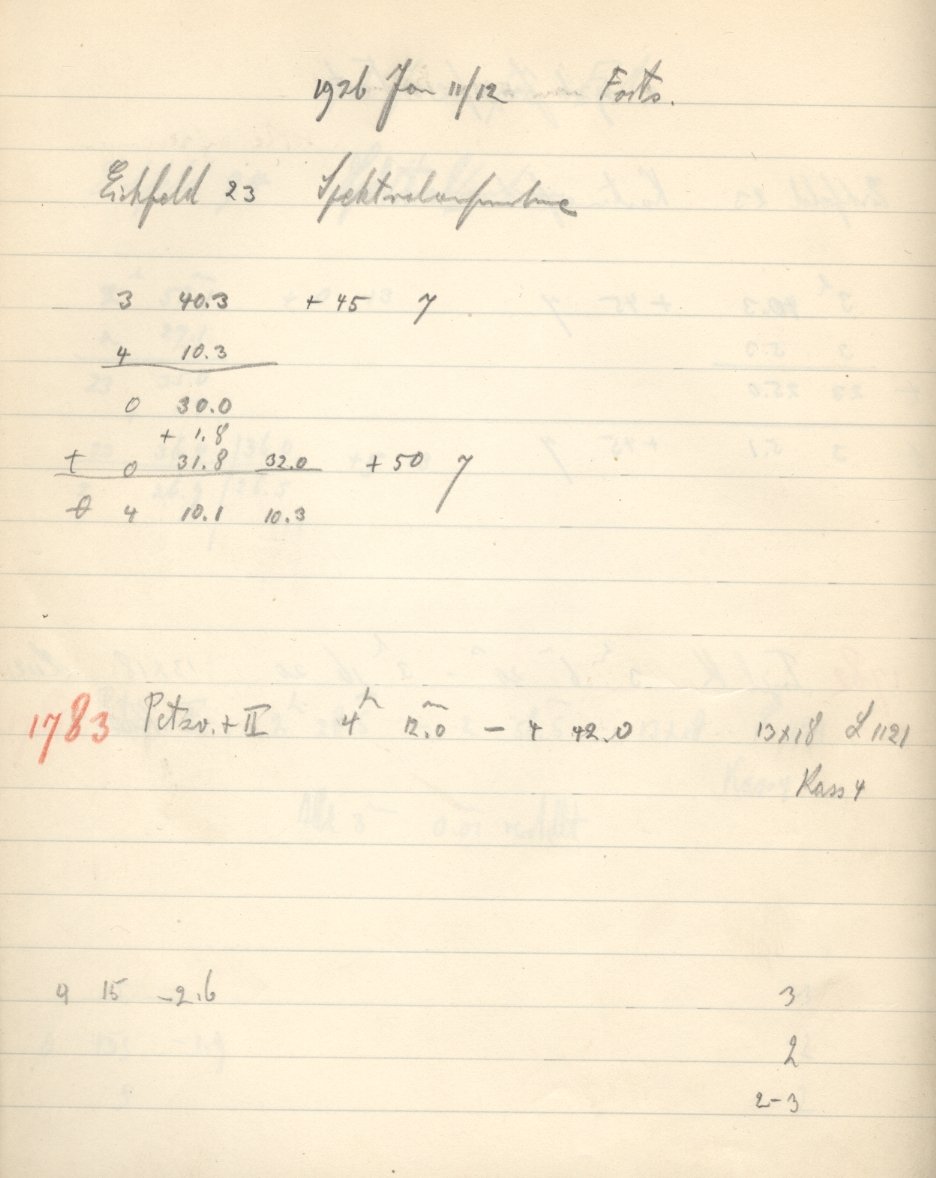 1926 Jan 11/12 Forts.
Eichfeld 23 Spektralaufnahme
3 40.3 + 45 7
4 10.3
0 30.0
+ 1.8
t 0 31.8 32.0 + 50 7
θ 4 10.1 10.3
1783 Petzv. + II 4h 12m.0 – 4 42.0 13x18 L 1121
Kass 4
9 15 -2.6 3
2
2-3